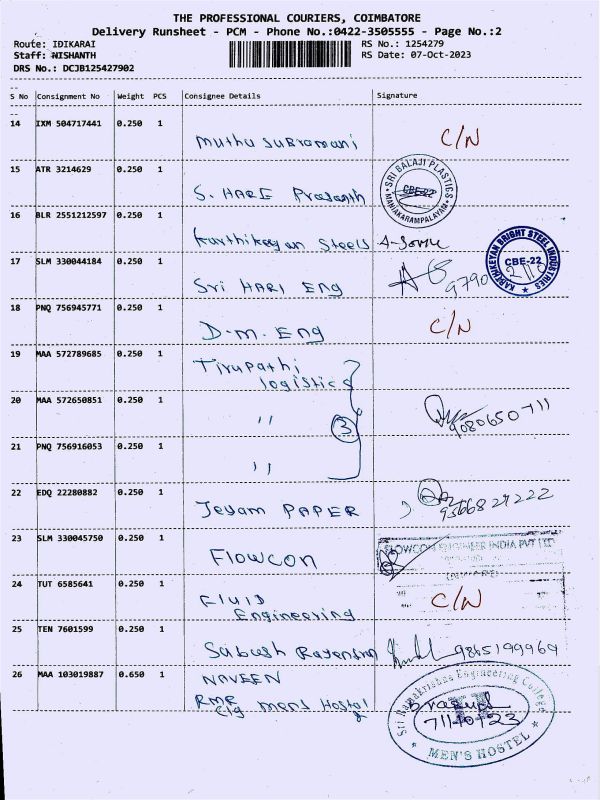 THE PROFESSIONAL COURIERS, COIMBATORE
Delivery Runsheet - PCM - Phone No.:0422-3505555 - Page No.:2
Route: IDIKARAI
Staff: NISHANTH
DRS No.: DCJB125427902
RS No.: 1254279
RS Date: 07-Oct-2023
S No Consignment No Weight PCS Consignee Details Signature
14 IXM 504717441 0.250 1 Muthu SuBramani C/N
15 ATR 3214629 0.250 1 S. HARE Prasanth
SRI BALAJI PLASTICS
CBE-22
MANIAKARAMPALAYAM
16 BLR 2551212597 0.250 1 Karthikeyan Steels
17 SLM 330044184 0.250 1 Sri HARI Eng 9790
KARTHIKEYAN BRIGHT STEEL INDUSTRIES
CBE-22
18 PNQ 756945771 0.250 1 D.M. Eng C/N
19 MAA 572789685 0.250 1 Tirupathi
logistics
20 MAA 572650851 0.250 1 〃 3 9080650711
21 PNQ 756916053 0.250 1 〃
22 EDQ 22280882 0.250 1 Jeyam PAPER
23 SLM 330045750 0.250 1 Flowcon
INDIA PVT LTD
24 TUT 6585641 0.250 1 FLUID
Engineering C/N
25 TEN 7601599 0.250 1 Subash Rajendran 9865199969
26 MAA 103019887 0.650 1 NAVEEN
RMR
clg mens Hostal
Sri Ramakrishna Engineering College
7110423
MEN'S HOSTEL